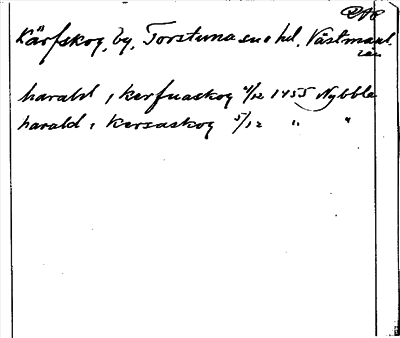 Kärfskog, by, Torstuna sn o hd. Västmanl.
län
harald i kerfuaskog 4/12 1455 Nybble
harald i Kersaskog 5/12 " "